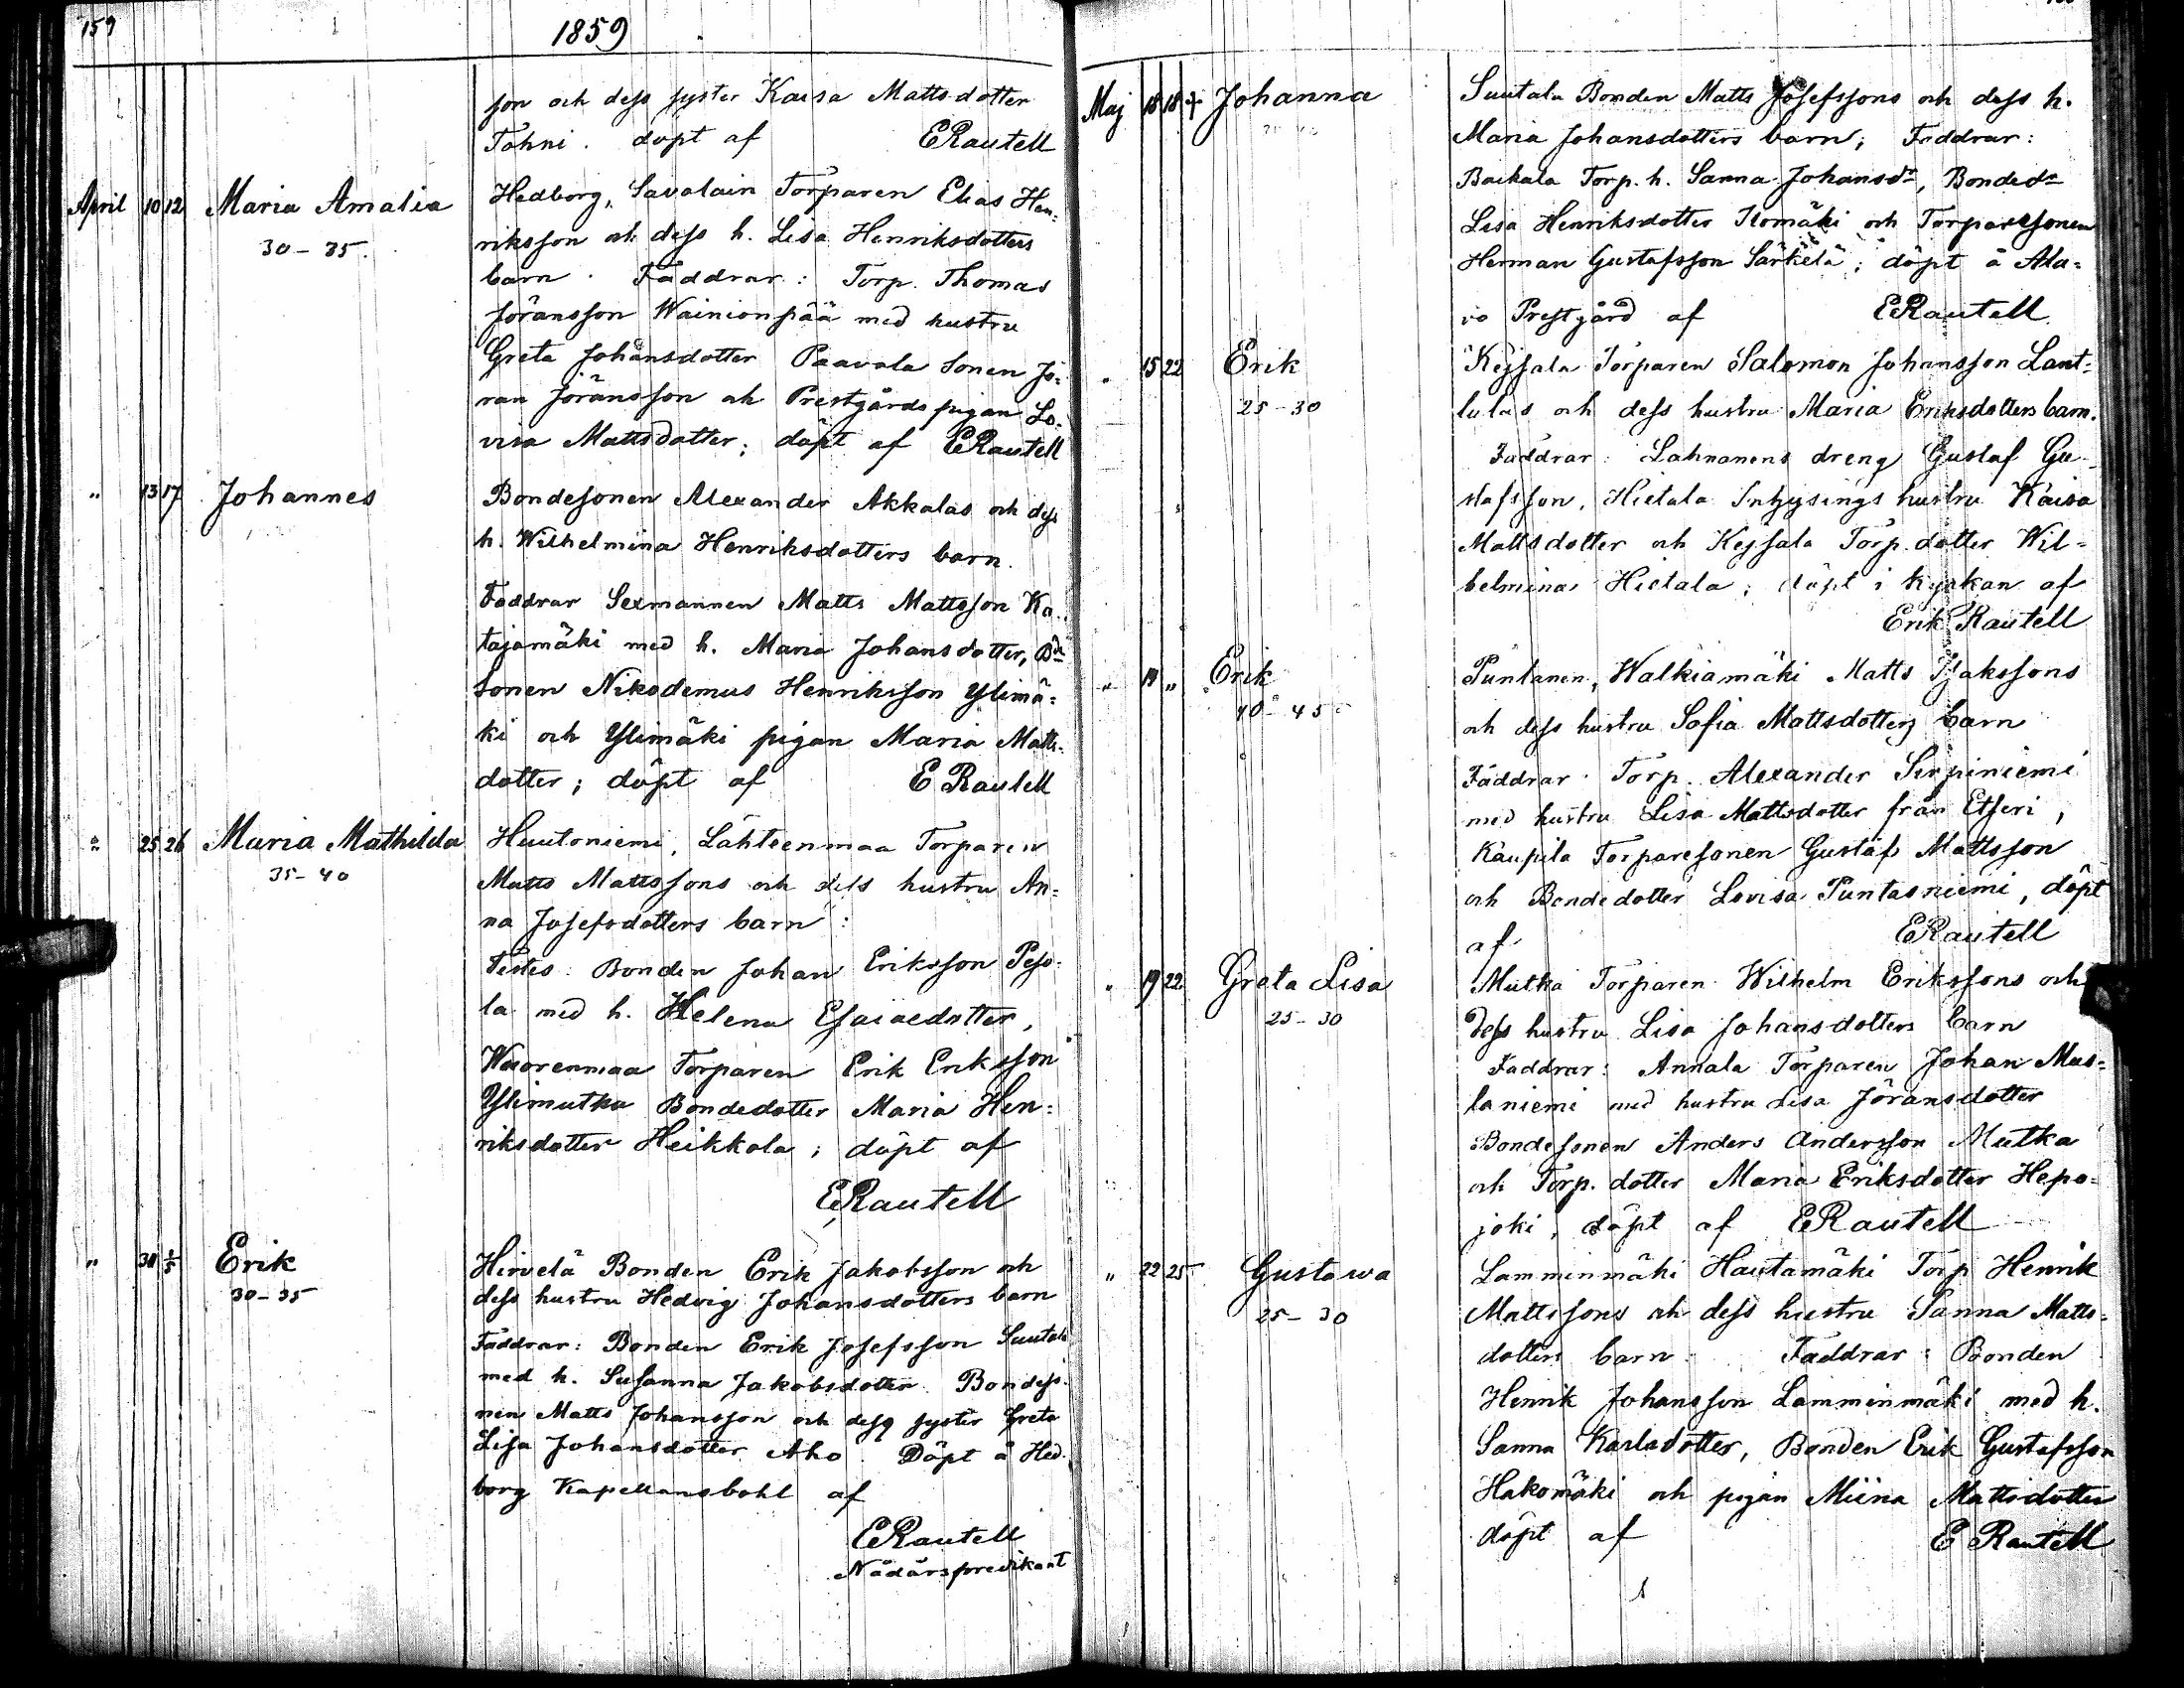 159
1859
son och dess syster Kaisa Mattsdotter
Tohni. döpt af ERautell
April 10 12 Maria Amalia Hedborg, Savolain Torparen Elias Hen-
30-35. riksson och dess h. Lisa Henriksdotters
barn. Faddrar: Torp. Thomas
Jöransson Wainionpää med hustru
Greta Johansdotter Paavola sonen Jö-
ran Jöransson och Prestgårds pigan Lo-
visa Mattsdotter; döpt af ERautell
" 13 17 Johannes Bondesonen Alexander Akkalas och dess
h. Wilhelmina Henriksdotters barn.
Faddrar Sexmannen Matts Mattsson Ka-
tajamäki med h. Maria Johansdotter, Bde
sonen Nikodemus Henriksson Ylimä-
ki och Ylimäki pigan Maria Matts-
dotter; döpt af E Rautell
" 25 26 Maria Mathilda Huutoniemi, Lähteenmaa Torparen
35-40 Matts Mattssons och dess hustru An-
na Josefsdotters barn:
Testes: Bonden Johan Eriksson Peso-
la med h. Helena Esaiaedotter,
Wuorenmaa Torparen Erik Eriksson
Ylimutka Bondedotter Maria Hen-
riksdotter Heikkola; döpt af
ERautell
" 30 1/5 Erik Hirvelä Bonden Erik Jakobsson och
30-35 dess hustru Hedvig Johansdotters barn
Faddrar: Bonden Erik Josefsson Suutala
med h. Susanna Jakobsdotter. Bondeso-
nen Matts Johansson och dess syster Greta
Lisa Johansdotter Aho. Döpt å Hed-
borg Kapellansbohl af
ERautell
Nådårspredikant
Maj 18 18 + Johanna Suutala Bonden Matts Josefssons och dess h.
Maria Johansdotters barn; Faddrar:
Torp. h. Sanna Johansdr, Bondedr
Lisa Henriksdotter Ilomäki och Torparesonen
Herman Gustafsson Särkelä; döpt å Ala-
vo Prestgård af ERautell
" 15 22 Erik Kejsala Torparen Salomon Johansson Lant-
25-30 lulas och dess hustru Maria Eriksdotters barn.
Faddrar: Lahnanens dreng Gustaf Gu-
stafsson, Hietala Inhysings hustru Kaisa
Mattsdotter och Kejsala Torp. dotter Wil-
helmina Hietala; döpt i kyrkan af
Erik Rautell
" 14 " Erik Puntanen, Walkiamäki Matts Isakssons
40-45 och dess hustru Sofia Mattsdotters barn
Faddrar: Torp. Alexander Sirpiniemi
med hustru Lisa Mattsdotter från Etseri,
Kaupila Torparesonen Gustaf Mattsson
och Bondedotter Lovisa Puntasniemi, döpt
af ERautell
" 19 22 Greta Lisa Mutka Torparen Wilhelm Erikssons och
25-30 dess hustru Lisa Johansdotters barn
Faddrar: Annala Torparen Johan Mus-
taniemi med hustru Lisa Jöransdotter
Bondesonen Anders Andersson Mutka
och Torp. dotter Maria Eriksdotter Hepo-
joki, döpt af ERautell
" 22 25 Gustava Lamminmäki Hautamäki Torp Henrik
25-30 Mattssons och dess hustru Sanna Matts-
dotters barn: Faddrar: Bonden
Henrik Johansson Lamminmäki med h.
Sanna Karlsdotter, Bonden Erik Gustafsson
Hakomäki och pigan Miina Mattsdotter
döpt af E Rautell